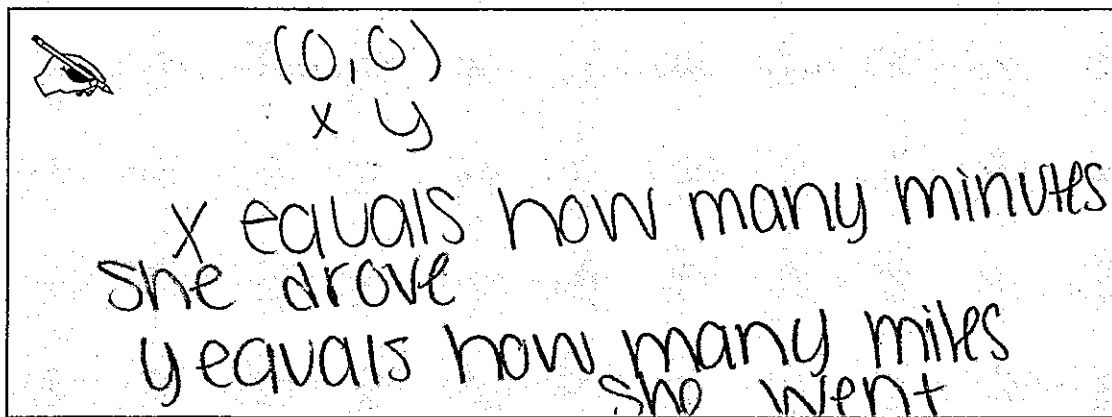 (0,0)
x y
x equals how many minutes
she drove
y equals how many miles
she went